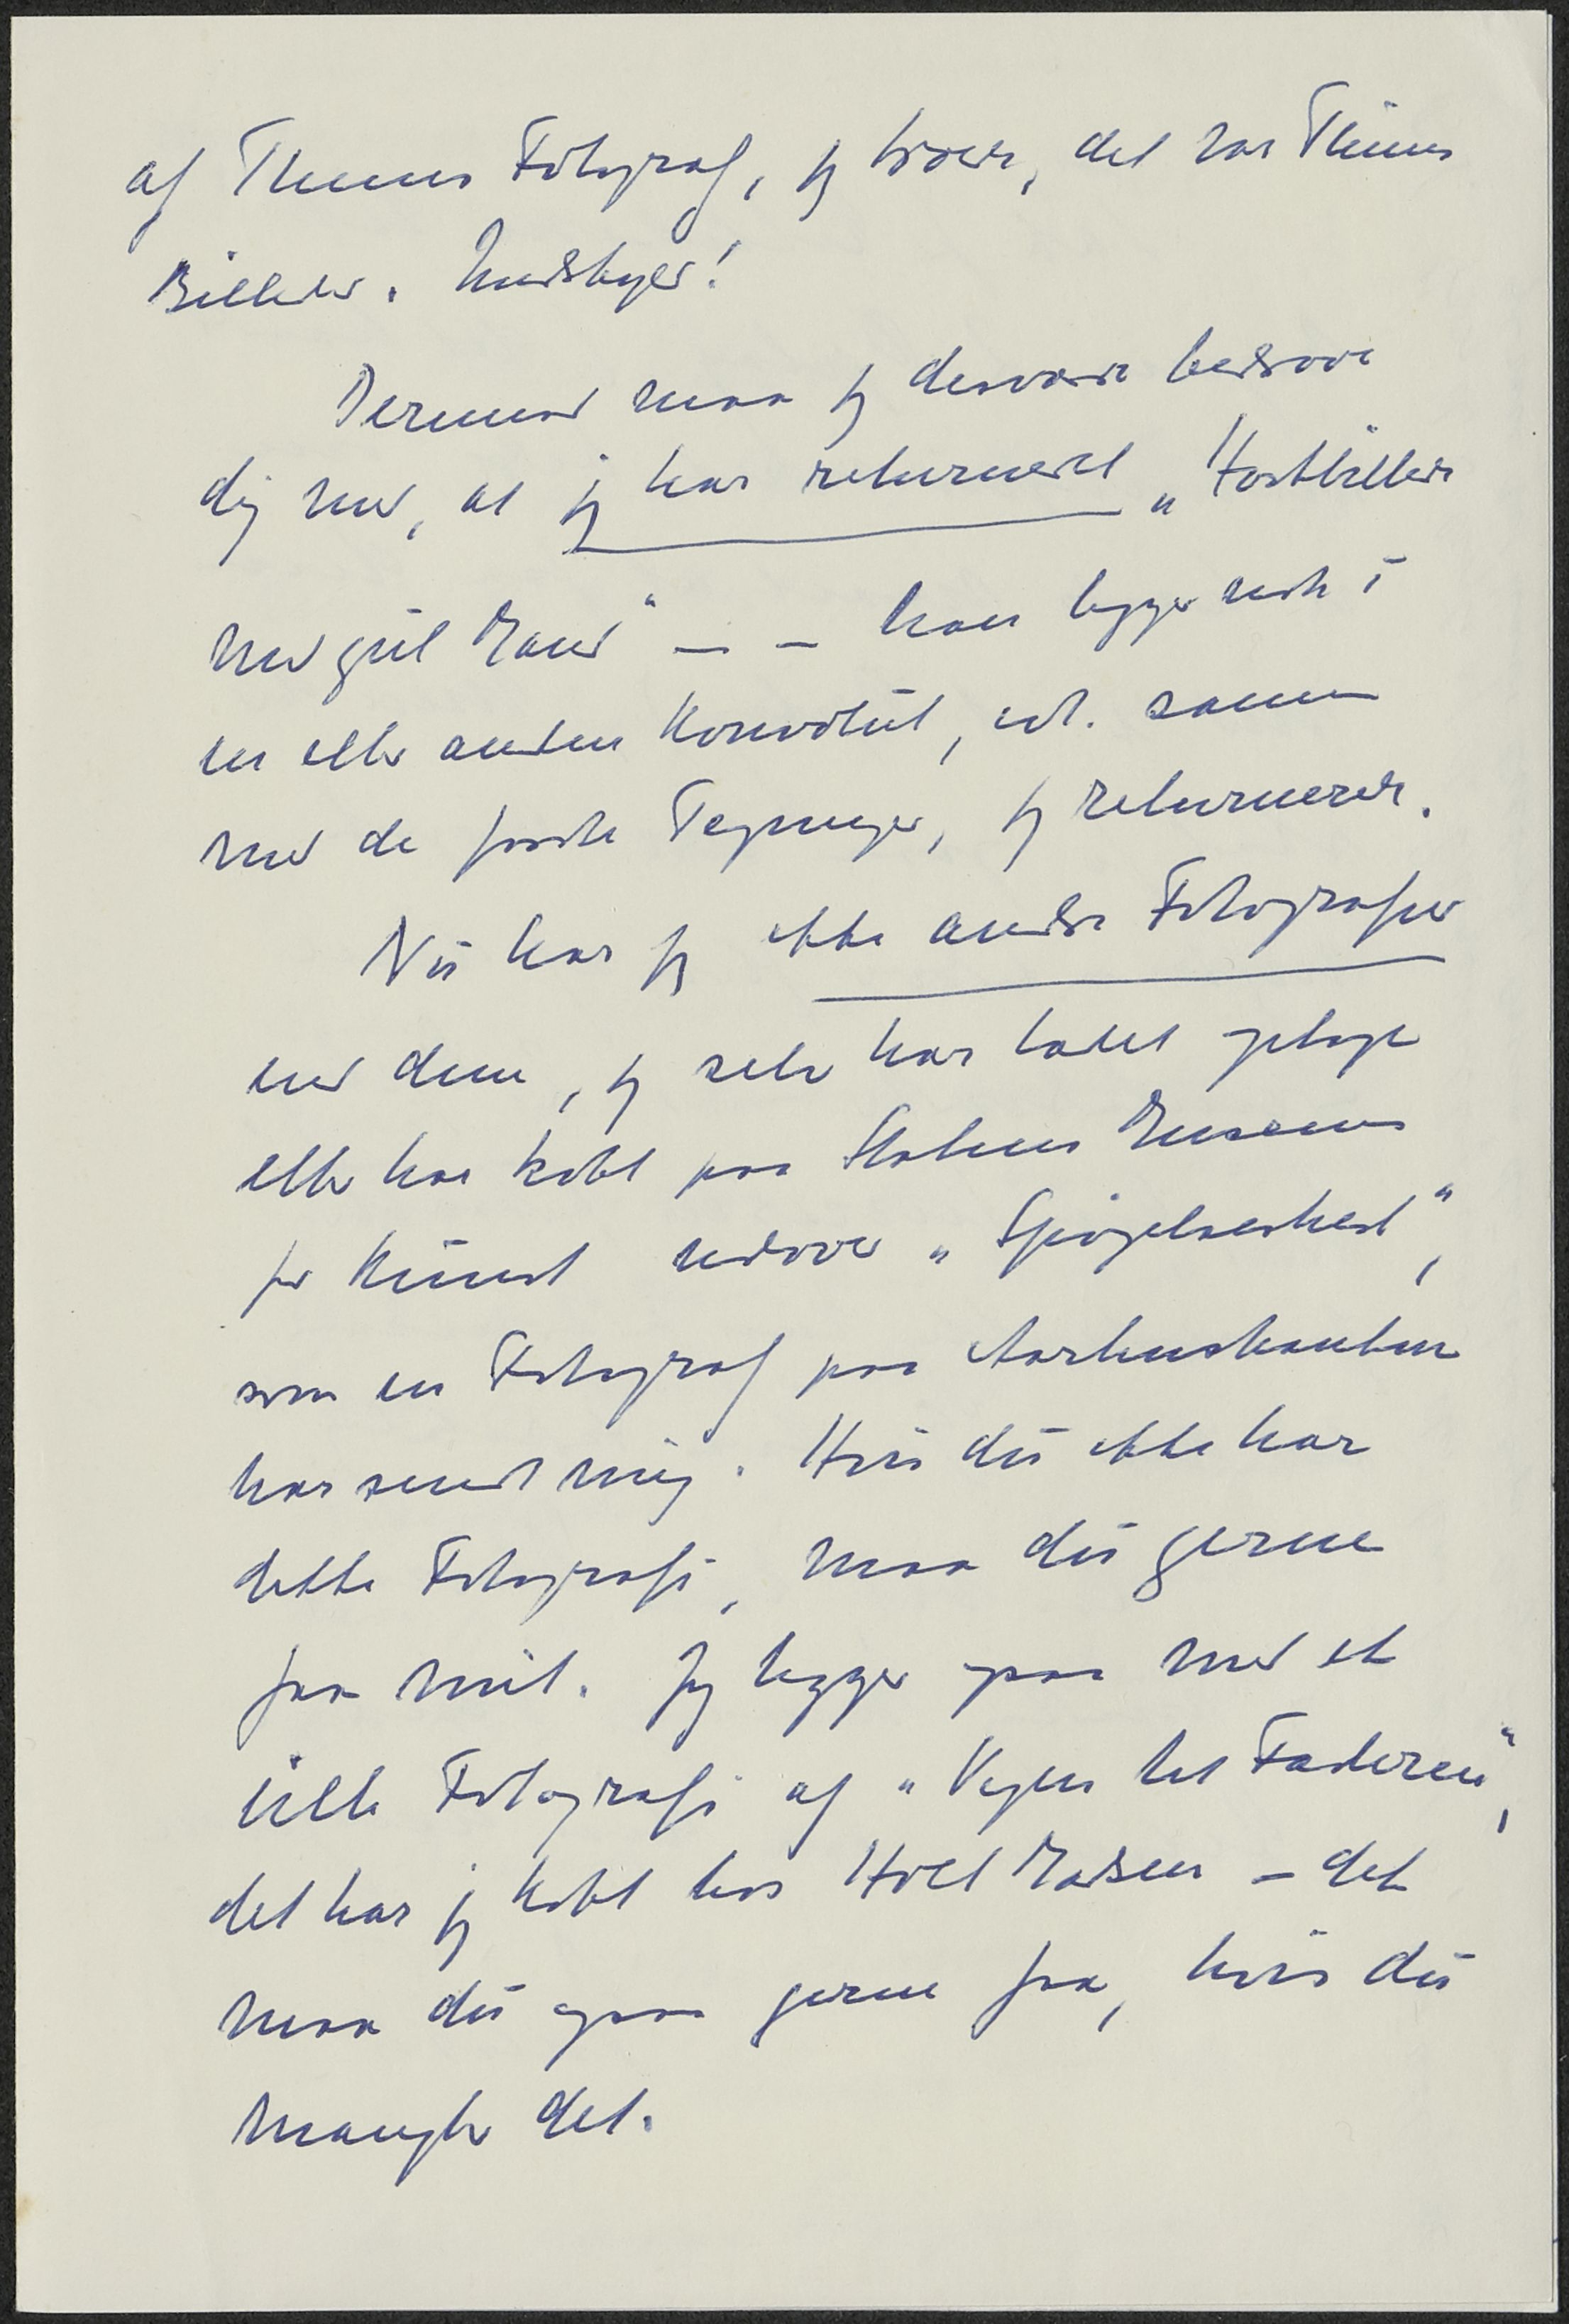 af Thennes Fotograf, jeg troede, det var Thennes
Billeder. Undskyld!
Dermed maa jeg desværre bedrøve
dig med, at jeg har returneret „Høstbilledet
med gul Mand" — — han ligger nok i
en eller anden Konvolut, evt. sammen
med de første Tegninger, jeg returnerede.
Nu har jeg ikke andre Fotografier
end dem, jeg selv har ladet
eller har købt paa Statens Museum
for Kunst udover „Spøgelseshest",
som en Fotograf paa Aarhuskanten
har sendt mig. Hvis du ikke har
dette Fotografi, maa du gerne
faa mit. Jeg lægger ogsaa med et
lille Fotografi af „Vejen til Faderen",
det har jeg købt hos Holl Madsen – det
maa du ogsaa gerne faa, hvis du
mangler det.